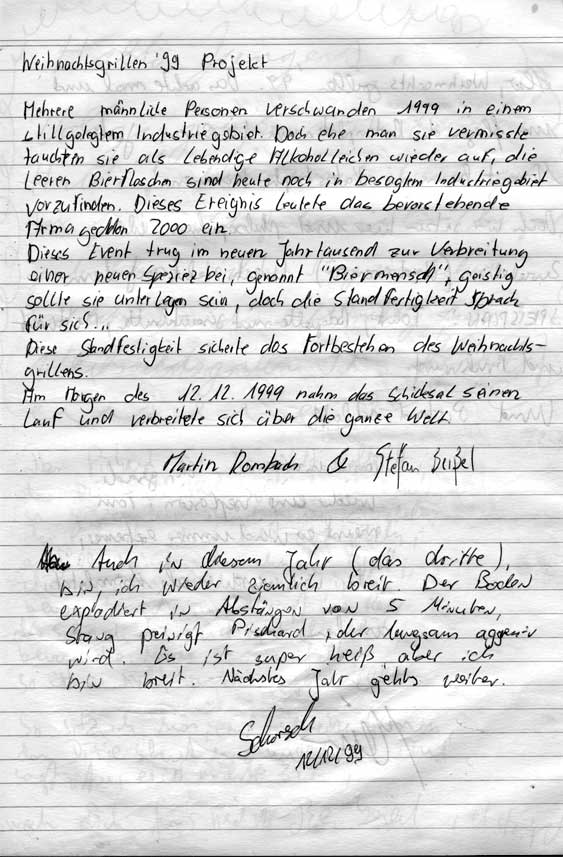 Weihnachtsgrillen '99 Projekt
Mehrere männliche Personen verschwanden 1999 in einem
stillgelegtem Industriegebiet. Doch ehe man sie vermisste
tauchten sie als Lebendige Alkoholleichen wieder auf, die
leeren Bierflaschen sind heute noch in besagtem Industriegebiet
vorzufinden. Dieses Ereignis leutete das bevorstehende
Armageddon 2000 ein.
Dieses Event trug im neuen Jahrtausend zur Verbreitung
einer neuen Speziez bei, genannt "Biermensch", geistig
sollte sie unterlegen sein, doch die Standfertigkeit sprach
für sich...
Diese Standfestigkeit sicherte das Fortbestehen des Weihnachts-
grillens.
Am Morgen des 12.12.1999 nahm das Schicksal seinen
Lauf und verbreitete sich über die ganze Welt.
Martin Rombach & Stefan Beißel
Auch in diesem Jahr (das dritte),
bin, ich wieder ziemlich breit. Der Boden
explodiert in Abständen von 5 Minuten,
peinigt der langsam aggresiv
wird. Es ist super heiß, aber ich
bin breit. Nächstes Jahr gehts weiter.
Schorsch
12/12/99